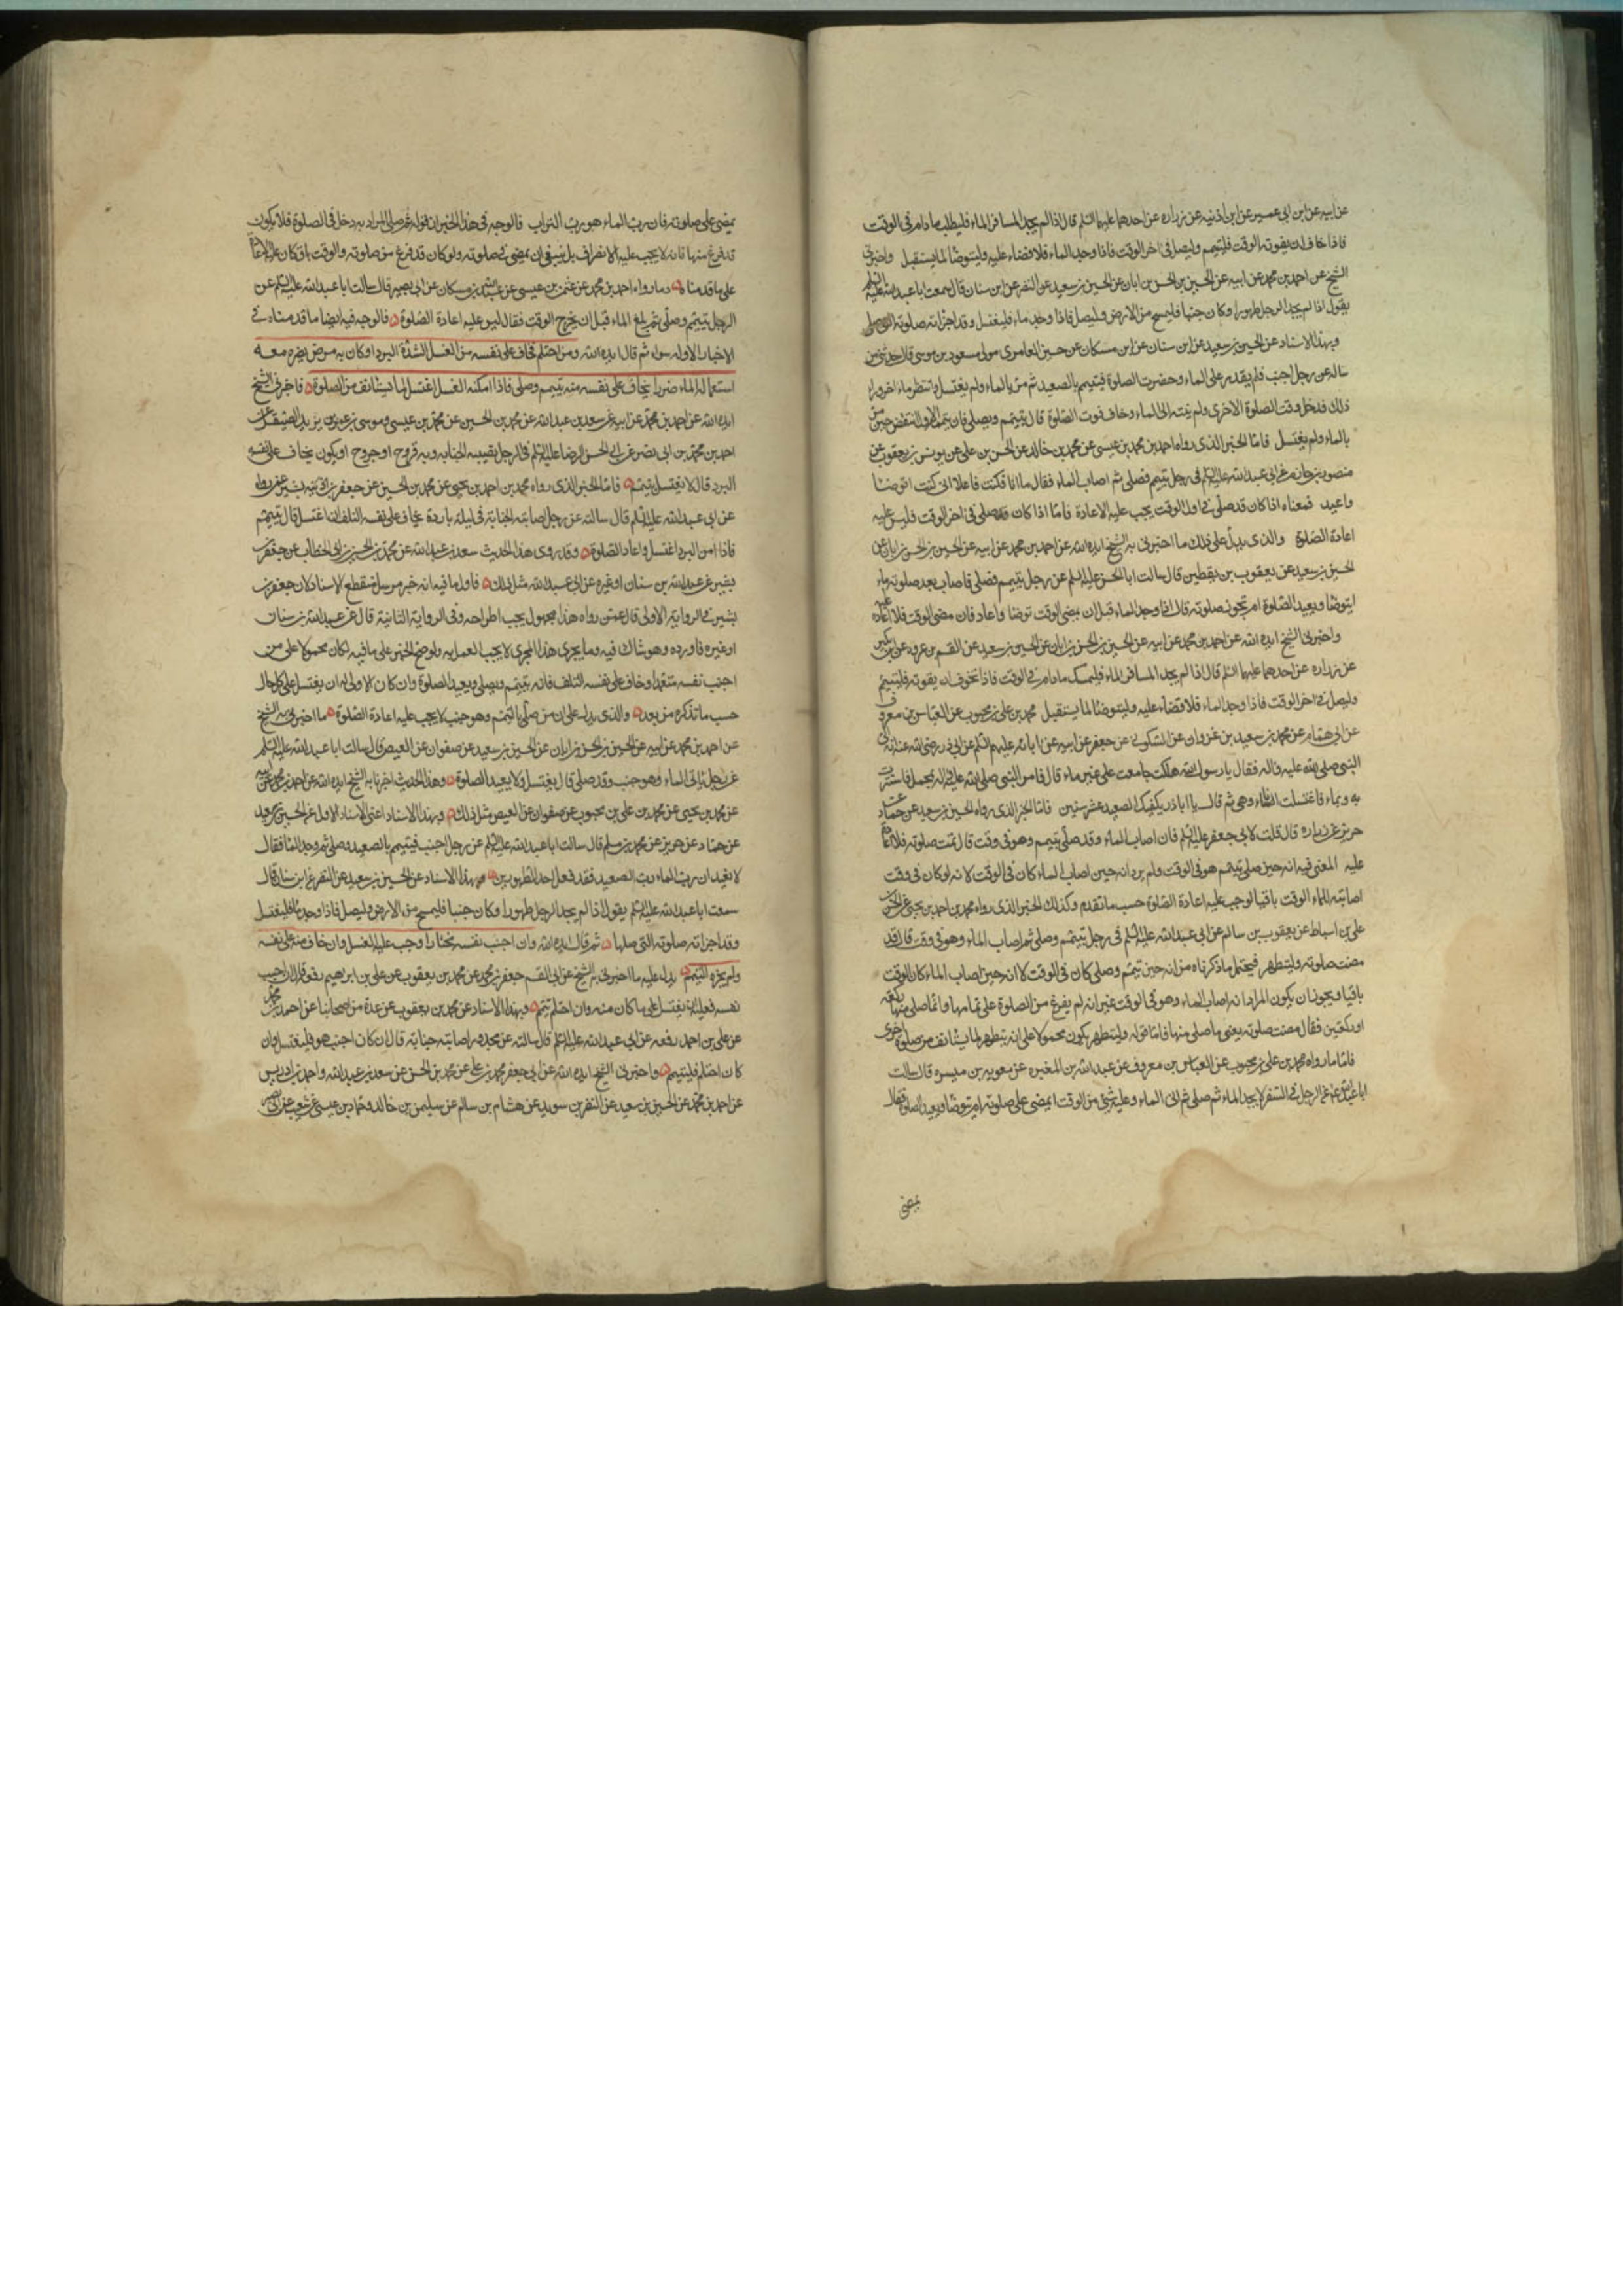 عن ابيه عن ابن ابى عمير عن ابن اذينه عن زراره عن احدهما عليهما السلم قال اذا لم يجد المسافر الماء فليطلب مادام فى الوقت
فاذا خاف ان يفوته الوقت فليتيمم وليصل فى اخر الوقت فاذا وجد الماء فلا قضاء عليه وليتوضا لما يستقبل واخبرنى
الشيخ عن احمد بن محمد عن ابيه عن الحسين بن الحسن بن ابان عن الحسين بن سعيد عن النضر عن ابن سنان قال سمعت ابا عبد الله عليه السلم
يقول اذا لم يجد الرجل طهورا وكان جنبا فليمسح من الارض وليصل فاذا وجد ماء فليغتسل وقد اجزاته صلوته التى صلى
وبهذا الاسناد عن الحسين بن سعيد عن ابن سنان عن ابن مسكان عن حسين العامرى مولى مسعود بن موسى قال حدثنى من
ساله عن رجل اجنب فلم يقدر على الماء وحضرت الصلوة فتيمم بالصعيد ثم مر بالماء ولم يغتسل وانتظر ماء اخر وراء
ذلك فدخل وقت الصلوة الاخرى ولم ينته الى الماء وخاف فوت الصلوة قال يتيمم ويصلى فان تيممه الاول انتقض حين مر
بالماء ولم يغتسل فاما الخبر الذى رواه احمد بن محمد بن عيسى عن محمد بن خالد عن الحسن بن على عن يونس بن يعقوب عن
منصور بن حازم عن ابى عبد الله عليه السلم فى رجل تيمم فصلى ثم اصاب الماء فقال اما انا فكنت فاعلا انى كنت اتوضا
واعيد فمعناه اذا كان قد صلى فى اول الوقت يجب عليه الاعادة فاما اذا كان قد صلى فى اخر الوقت فليس عليه
اعادة الصلوة والذى يدل على ذلك ما اخبرنى به الشيخ ايده الله عن احمد بن محمد عن ابيه عن الحسين بن الحسن بن ابان عن
الحسين بن سعيد عن يعقوب بن يقطين قال سالت ابا الحسن عليه السلم عن رجل تيمم فصلى فاصاب بعد صلوته ماء
ايتوضا ويعيد الصلوة ام تجوز صلوته قال اذا وجد الماء قبل ان يمضى الوقت توضا واعاد فان مضى الوقت فلا اعادة عليه
واخبرنى الشيخ ايده الله عن احمد بن محمد عن ابيه عن الحسين بن الحسن بن ابان عن الحسين بن سعيد عن القسم بن عروه عن ابن بكير
عن زراره عن احدهما عليهما السلم قال اذا لم يجد المسافر الماء فليمسك مادام فى الوقت فاذا تخوف ان يفوته فليتيمم
وليصل فى اخر الوقت فاذا وجد الماء فلا قضاء عليه وليتوضا لما يستقبل محمد بن على بن محبوب عن العباس بن معروف
عن ابى همام عن محمد بن سعيد بن غزوان عن السكونى عن جعفر عن ابيه عن ابائه عليهم السلم عن ابى ذر رضى الله عنه انه اتى
النبى صلى الله عليه واله فقال يا رسول الله هلكت جامعت على غير ماء قال فامر النبى صلى الله عليه واله بمحمل فاستترت
به وبماء فاغتسلت انا وهى ثم قال يا ابا ذر يكفيك الصعيد عشر سنين فاما الخبر الذى رواه الحسين بن سعيد عن حماد عن
حريز عن زراره قال قلت لابى جعفر عليه السلم فان اصاب الماء وقد صلى بتيمم وهو فى وقت قال تمت صلوته فلا اعادة
عليه المعنى فيه انه حين صلى بتيمم هو فى الوقت ولم يرد انه حين اصاب الماء كان فى الوقت لانه لو كان فى وقت
اصابته الماء الوقت باقيا لوجب عليه اعادة الصلوة حسب ما تقدم وكذلك الخبر الذى رواه محمد بن احمد بن يحيى عن الحسن
على بن اسباط عن يعقوب بن سالم عن ابى عبد الله عليه السلم فى رجل تيمم وصلى ثم اصاب الماء وهو فى وقت قال قد
مضت صلوته وليتطهر فيحتمل ما ذكرناه من انه حين تيمم وصلى كان فى الوقت لا انه حين اصاب الماء كان الوقت
باقيا ويجوز ان يكون المراد انه اصاب الماء وهو فى الوقت غير انه لم يفرغ من الصلوة على تمامها وانما صلى منها ركعة
او ركعتين فقال مضت صلوته يعنى ما صلى منها فاما قوله وليتطهر يكون محمولا على انه يتطهر لما يستانف من صلوة اخرى
فاما ما رواه محمد بن على بن محبوب عن العباس بن معروف عن عبد الله بن المغيره عن معويه بن ميسره قال سالت
ابا عبد الله عن الرجل فى السفر لا يجد الماء ثم صلى ثم اتى الماء وعليه شئ من الوقت ايمضى على صلوته ام يتوضا ويعيد الصلوة فقال
يمضى
يمضى على صلوته فان رب الماء هو رب التراب فالوجه فى هذا الخبر ان قوله ثم صلى المراد به دخل فى الصلوة فلا يكون
قد فرغ منها فانه لا يجب عليه الانصراف بل ينبغى ان يمضى فى صلوته ولو كان قد فرغ من صلوته والوقت باق كان عليه الاعادة
على ما قدمنا وما رواه احمد بن محمد عن عثمن بن عيسى عن عبد الله بن مسكان عن ابى بصير قال سالت ابا عبد الله عليه السلم عن
الرجل تيمم وصلى ثم بلغ الماء قبل ان يخرج الوقت فقال ليس عليه اعادة الصلوة فالوجه فيه ايضا ما قدمناه فى
الاخبار الاوله سواء ثم قال ايده الله ومن احتلم فخاف على نفسه من الغسل لشدة البرد او كان به مرض يضره معه
استعمال الماء ضررا يخاف على نفسه منه تيمم وصلى فاذا امكنه الغسل اغتسل لما يستانف من الصلوة فاخبرنى الشيخ
ايده الله عن احمد بن محمد عن ابيه عن سعد بن عبد الله عن محمد بن الحسين عن محمد بن عيسى وموسى بن عمر بن يزيد الصيقل عن
احمد بن محمد بن ابى نصر عن ابى الحسن الرضا عليه السلم فى الرجل تصيبه الجنابه وبه قروح او جروح او يكون يخاف على نفسه
البرد قال لا يغتسل يتيمم فاما الخبر الذى رواه محمد بن احمد بن يحيى عن محمد بن الحسين عن جعفر بن بشير عمن رواه
عن ابى عبد الله عليه السلم قال سالته عن رجل اصابته الجنابة فى ليلة باردة يخاف على نفسه التلف ان اغتسل قال يتيمم
فاذا امن البرد اغتسل واعاد الصلوة وقد روى هذا الحديث سعد بن عبد الله عن محمد بن الحسين بن ابى الخطاب عن جعفر بن
بشير عن عبد الله بن سنان او غيره عن ابى عبد الله مثل ذلك فاول ما فيه انه خبر مرسل منقطع الاسناد لان جعفر بن
بشير فى الرواية الاولى قال عمن رواه هذا مجهول يجب اطراحه وفى الرواية الثانية قال عن عبد الله بن سنان
او غيره فاورده وهو شاك فيه وما يجرى هذا المجرى لا يجب العمل به ولو صح الخبر على ما فيه لكان محمولا على من
اجنب نفسه متعمدا وخاف على نفسه التلف فانه يتيمم ويصلى ويعيد الصلوة وان كان الاولى له ان يغتسل على كل حال
حسب ما نذكره من بعد والذى يدل على ان من صلى بالتيمم وهو جنب لا يجب عليه اعادة الصلوة ما اخبرنى به الشيخ
عن احمد بن محمد عن ابيه عن الحسين بن الحسن بن ابان عن الحسين بن سعيد عن صفوان عن العيص قال سالت ابا عبد الله عليه السلم
عن رجل ياتى الماء وهو جنب وقد صلى قال يغتسل ولا يعيد الصلوة وهذا الحديث اخبرنا به الشيخ ايده الله عن احمد بن محمد عن ابيه
عن محمد بن يحيى عن محمد بن على بن محبوب عن صفوان عن العيص مثل ذلك وبهذا الاسناد اعنى الاسناد الاول عن الحسين بن سعيد
عن حماد عن حريز عن محمد بن مسلم قال سالت ابا عبد الله عليه السلم عن رجل اجنب فتيمم بالصعيد وصلى ثم وجد الماء فقال
لا يعيد ان رب الماء رب الصعيد فقد فعل احد الطهورين وبهذا الاسناد عن الحسين بن سعيد عن النضر عن ابن سنان قال
سمعت ابا عبد الله عليه السلم يقول اذا لم يجد الرجل طهورا وكان جنبا فليمسح من الارض وليصل فاذا وجد ماء فليغتسل
وقد اجزاته صلوته التى صلها ثم قال ايده الله وان اجنب نفسه مختارا وجب عليه الغسل وان خاف منه على نفسه
ولم يجزه التيمم يدل عليه ما اخبرنى به الشيخ عن ابى القسم جعفر بن محمد عن محمد بن يعقوب عن على بن ابرهيم رفعه قال ان اجنب
نفسه فعليه ان يغتسل على ما كان منه وان احتلم تيمم وبهذا الاسناد عن محمد بن يعقوب عن عدة من اصحابنا عن احمد بن محمد
عن على بن احمد رفعه عن ابى عبد الله عليه السلم قال سالته عن مجدور اصابته جنابة قال ان كان اجنب هو فليغتسل وان
كان احتلم فليتيمم واخبرنى الشيخ ايده الله عن ابى جعفر محمد بن على عن محمد بن الحسن عن سعد بن عبد الله واحمد بن ادريس
عن احمد بن محمد عن الحسين بن سعيد عن النضر بن سويد عن هشام بن سالم عن سليمن بن خالد وحماد بن عيسى عن شعيب عن ابى بصير